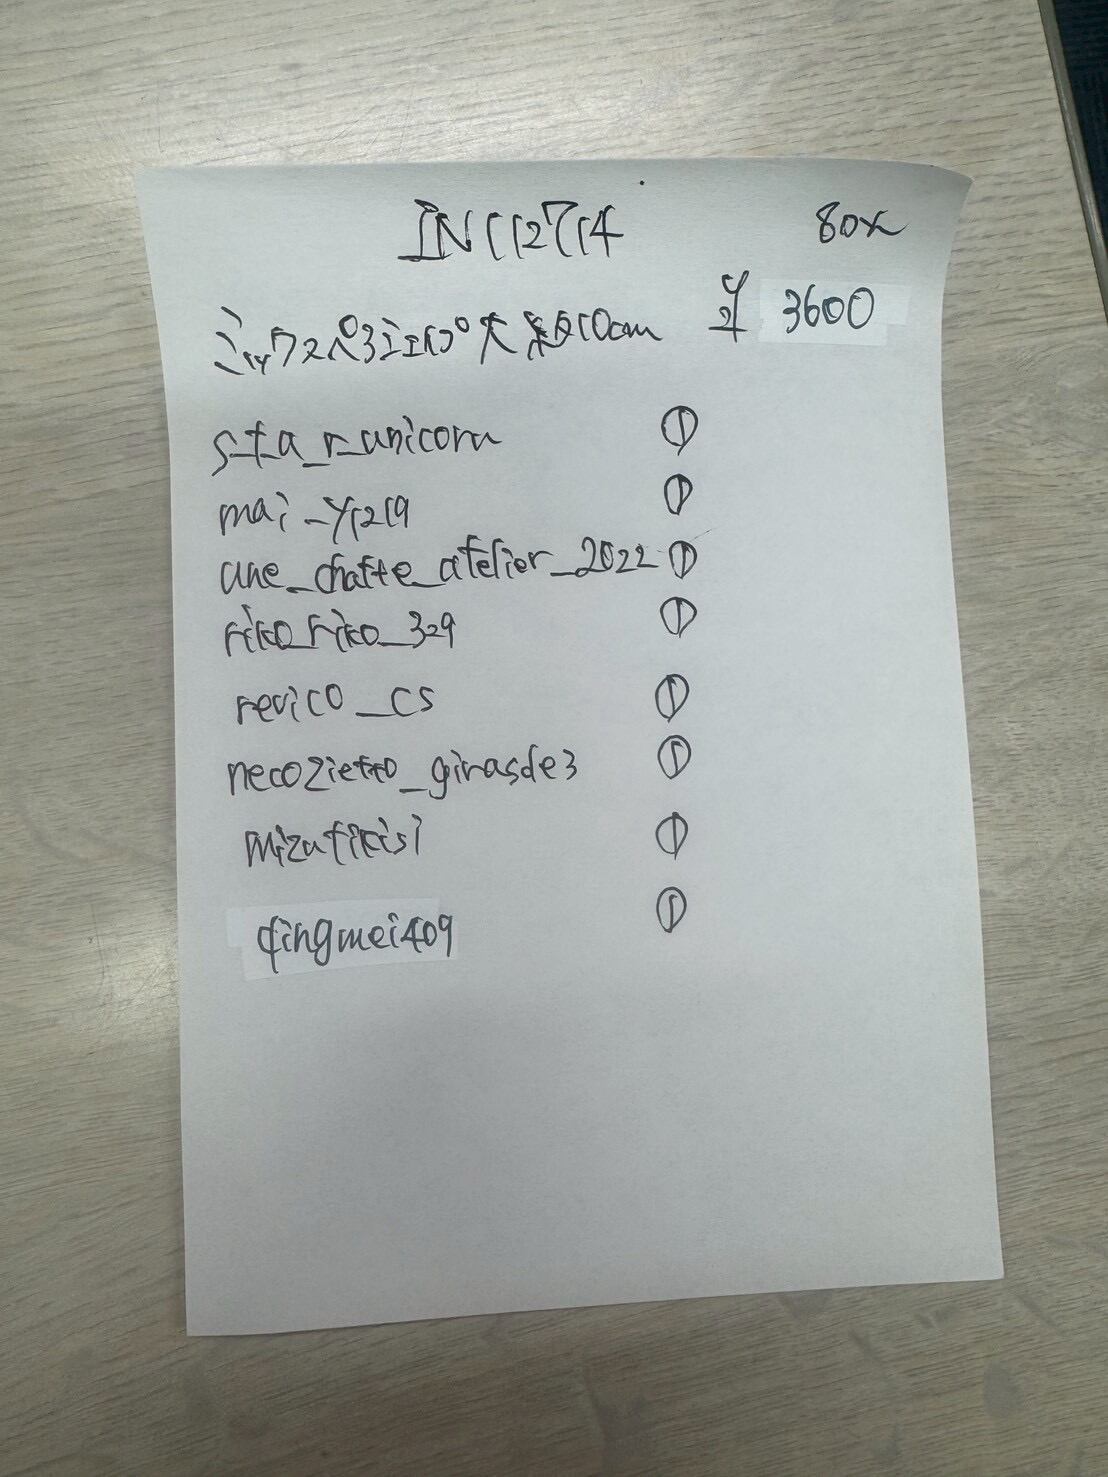 IN112714 80x
ミックスペ3 大 約10cm ¥ 3600
s_t_a_r_unicorn ①
mai_y1219 ①
une_chatte_atelier_2022 ①
riko_riko_329 ①
revico_cs ①
necozietto_girasole3 ①
mizutikisi ①
qingmei409 ①